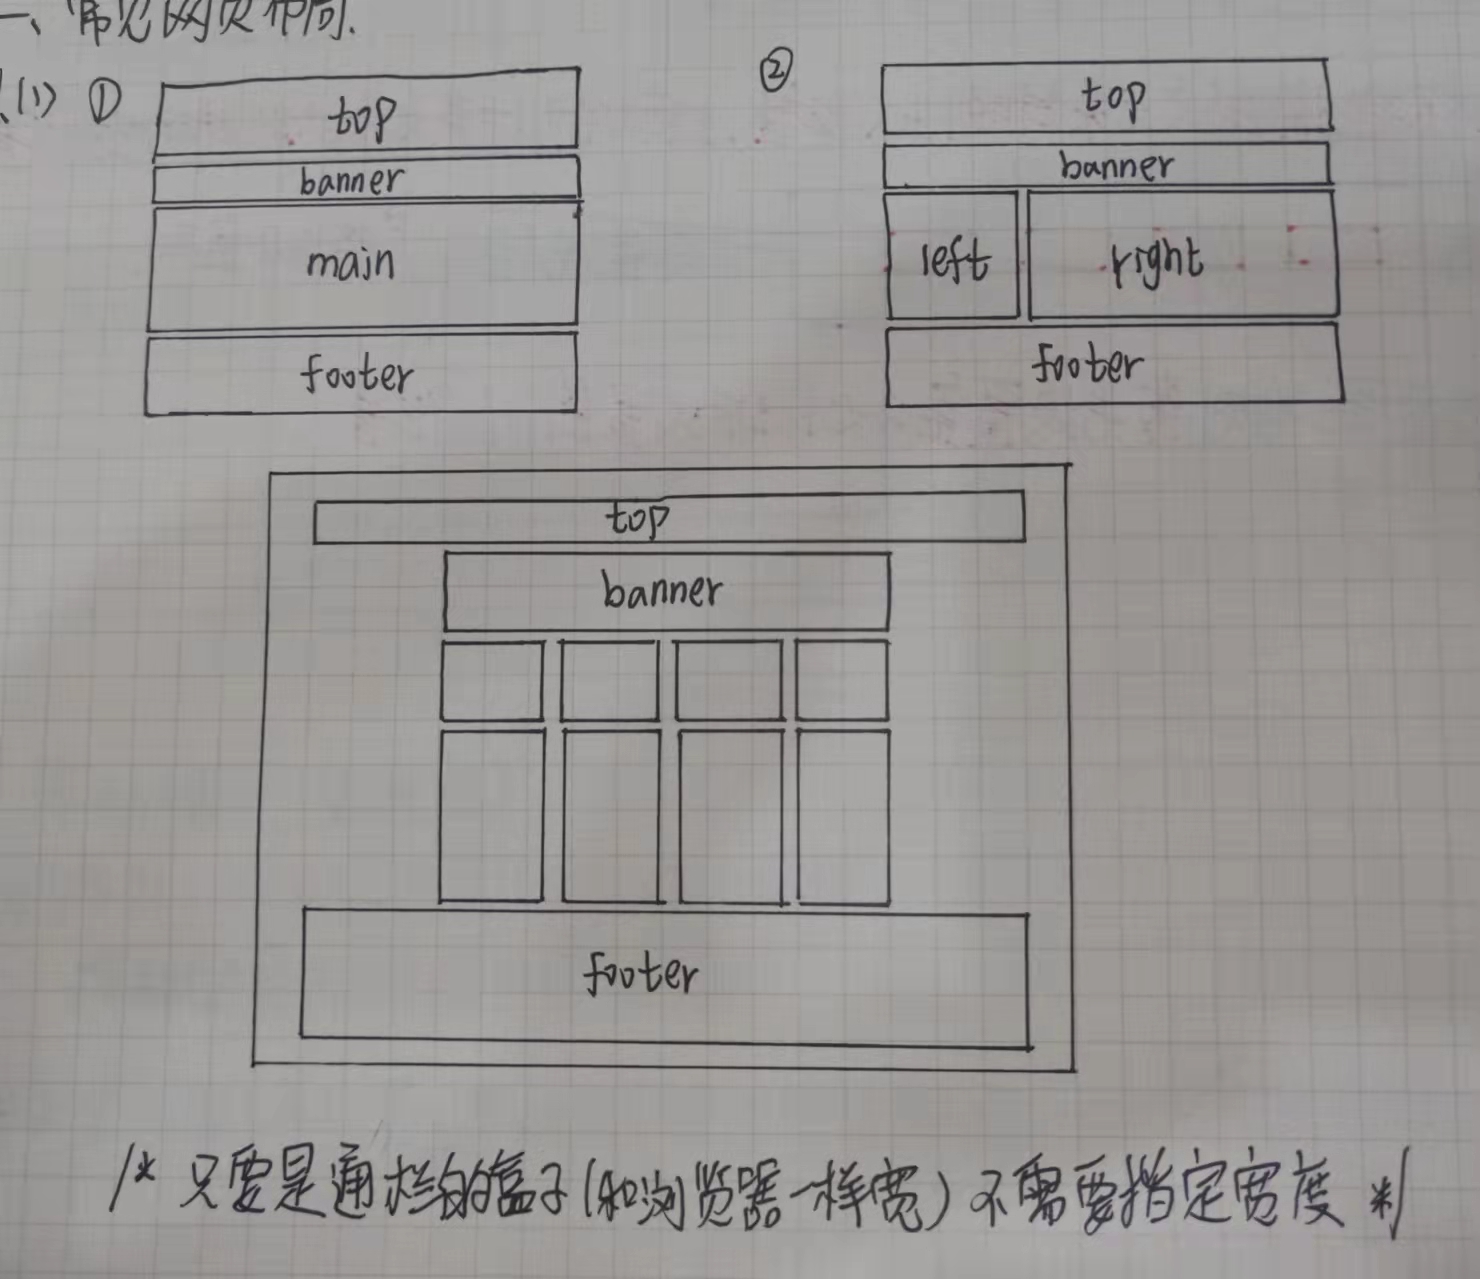 一、常见网页布局.
(1) ① ②
top
banner
main
footer
top
banner
left right
footer
top
banner
footer
/* 只要是通栏的盒子(和浏览器一样宽)不需要指定宽度 */